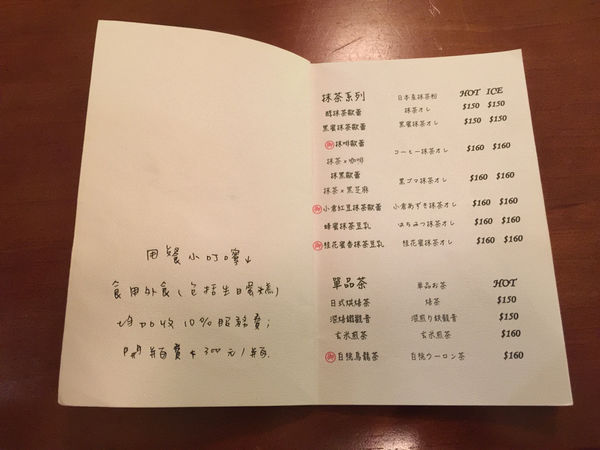 用餐小叮嚀↓
食用外食(包括生日蛋糕)
均加收10%服務費;
開瓶費$300元/瓶.
抹茶系列 日本產抹茶粉 HOT ICE
醇抹茶歐蕾 抹茶オレ $150 $150
黑蜜抹茶歐蕾 黑蜜抹茶オレ $150 $150
抹啡歐蕾
抹茶×咖啡 コーヒー抹茶オレ $160 $160
抹黑歐蕾
抹茶×黑芝麻 黒ゴマ抹茶オレ $160 $160
小倉紅豆抹茶歐蕾 小倉あずき抹茶オレ $160 $160
蜂蜜抹茶豆乳 はちみつ抹茶オレ $160 $160
桂花蜜香抹茶豆乳 桂花蜜抹茶オレ $160 $160
單品茶 單品お茶 HOT
日式烘焙茶 焙茶 $150
濃焙鐵觀音 濃煎り鉄觀音 $150
玄米煎茶 玄米煎茶 $160
白桃烏龍茶 白桃ウーロン茶 $160